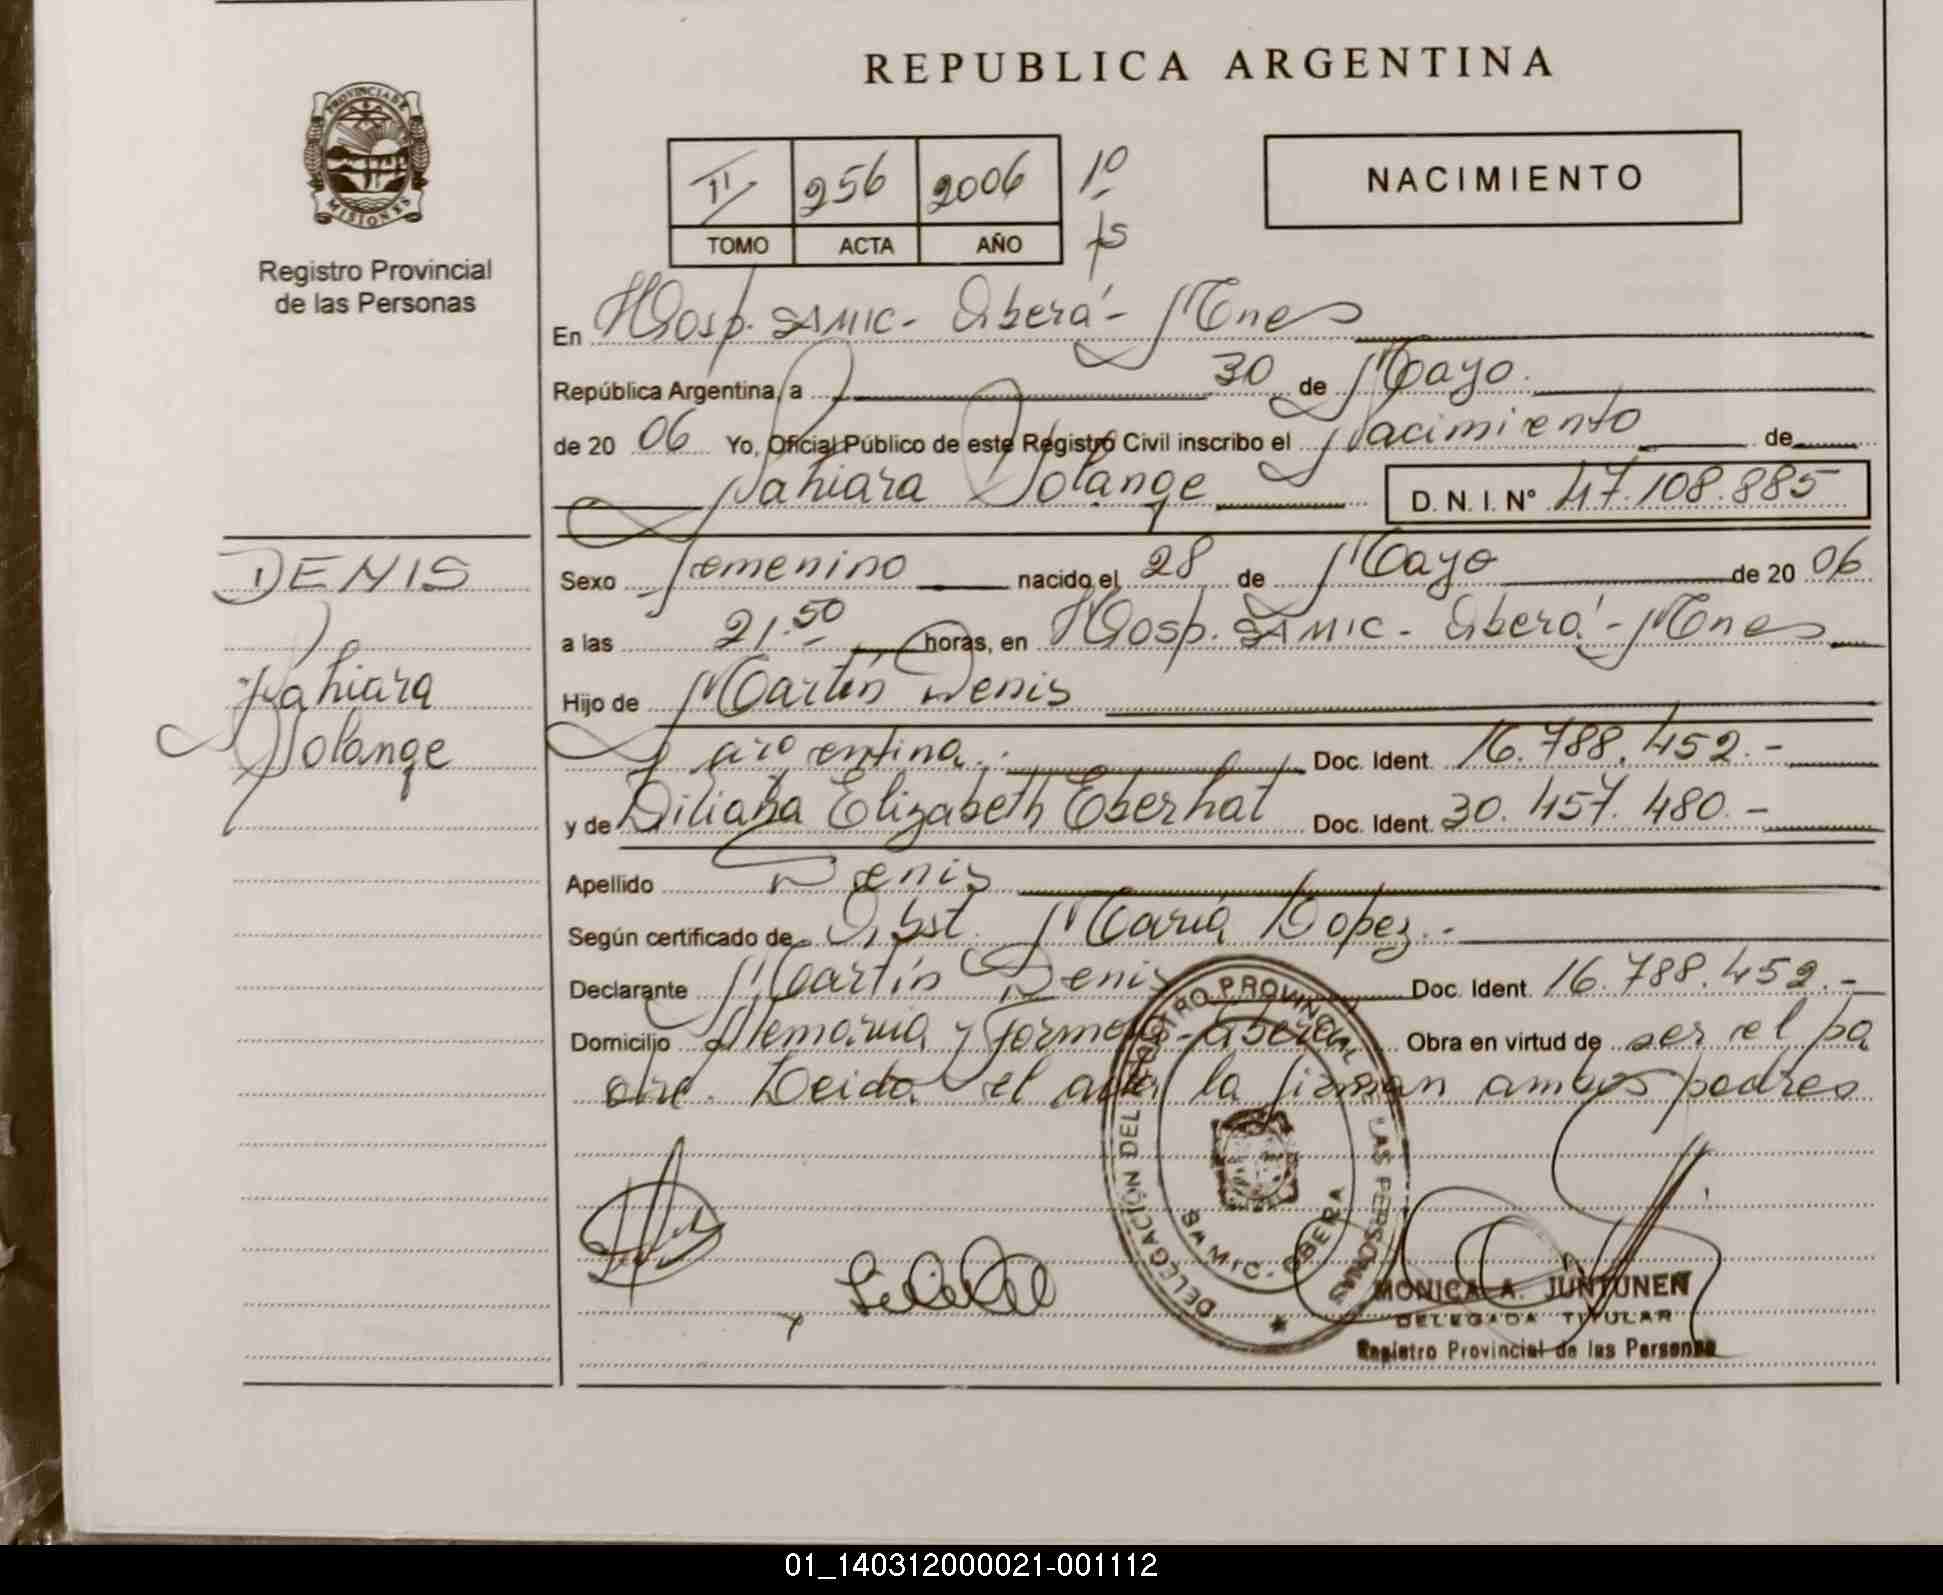 REPUBLICA ARGENTINA
PROVINCIA DE
MISIONES
Registro Provincial
de las Personas
II 256 2006 1º
TOMO ACTA AÑO fs
NACIMIENTO
En Hosp. SAMIC - Oberá - Mnes
República Argentina, a 30 de Mayo.
de 2006 Yo, Oficial Público de este Registro Civil inscribo el Nacimiento de
Nahiara Solange D. N. I. Nº 47.108.885
DENIS
Nahiara
Solange
Sexo Femenino nacido el 28 de Mayo de 2006
a las 21.50 horas, en Hosp. SAMIC - Oberá - Mnes
Hijo de Martín Denis
argentina. Doc. Ident. 16.788.452.-
y de Liliana Elizabeth Eberhat Doc. Ident. 30.457.480.-
Apellido Denis
Según certificado de Obst. María Lopez.-
Declarante Martín Denis Doc. Ident. 16.788.452.-
Domicilio y Obera Obra en virtud de ser el pa
dre. Leida el acta la firman ambos padres
DELEGACIÓN DEL REGISTRO PROVINCIAL DE LAS PERSONAS
SAMIC - OBERA
MONICA A. JUNTUNEN
DELEGADA TITULAR
Registro Provincial de las Personas
01_140312000021-001112